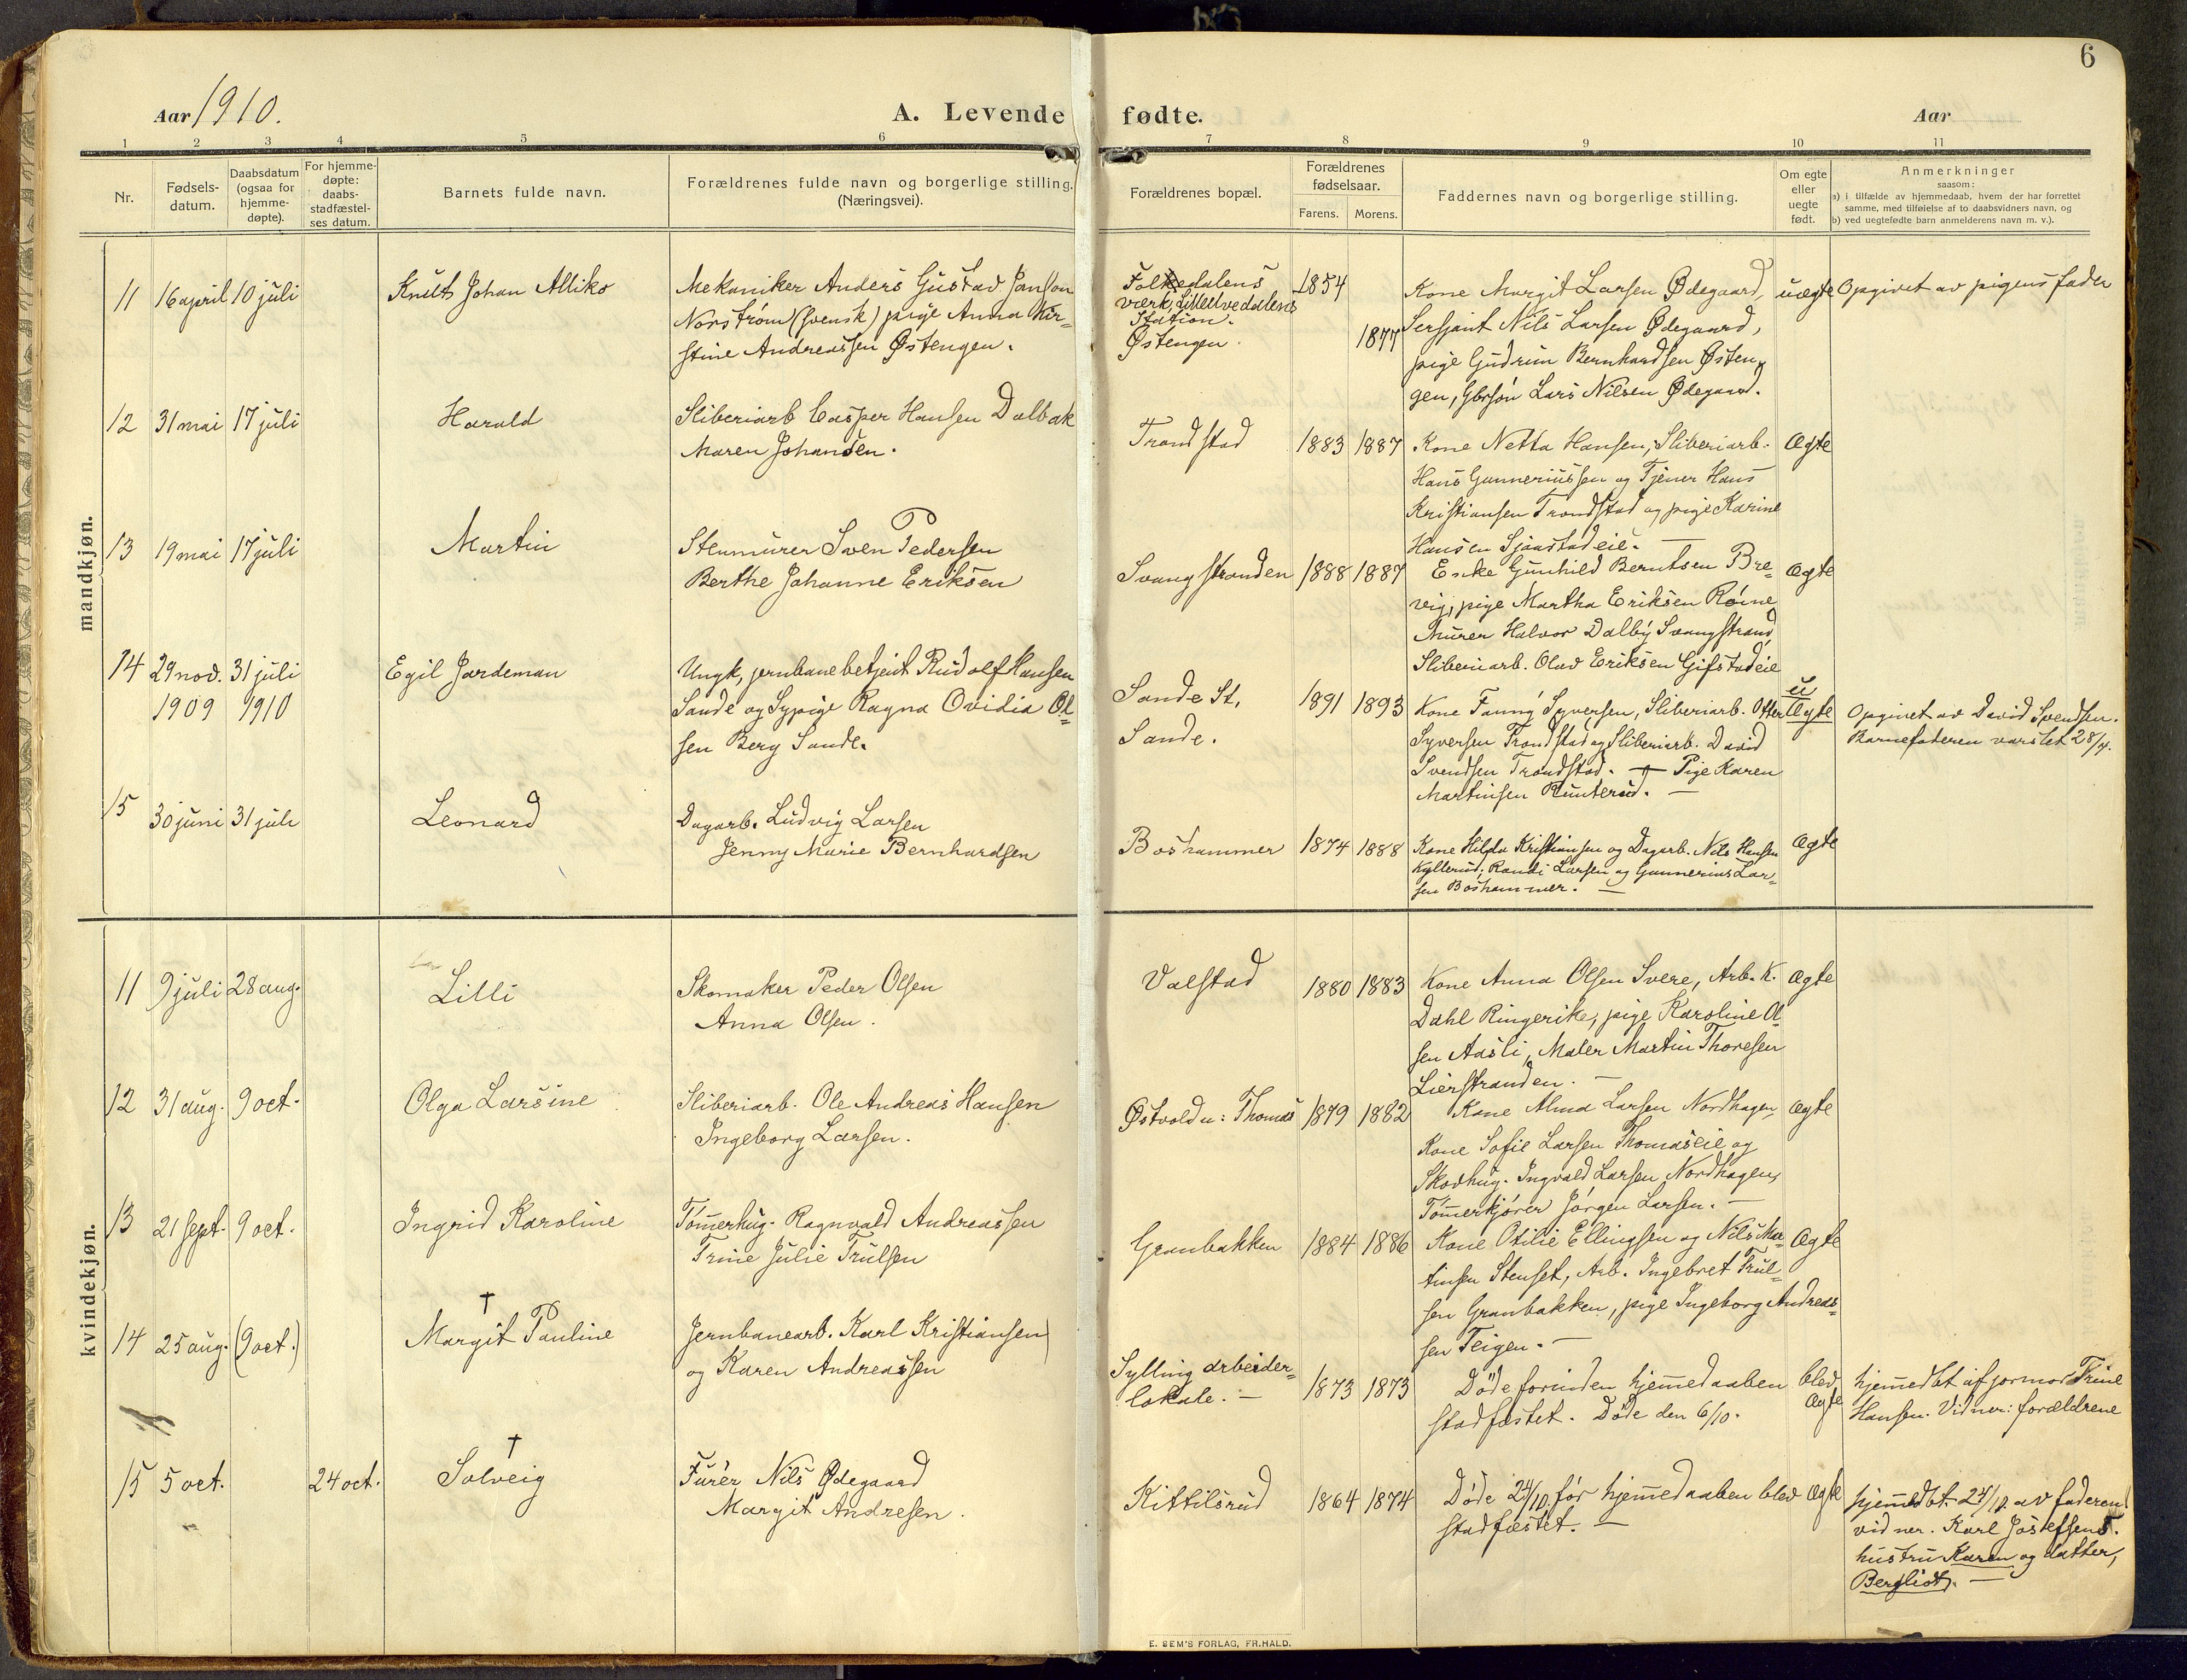 6
Aar 1910.
A. Levende fødte.
Aar
1 2 3 4 5 6 7 8 9 10 11
Nr.
Fødsels-
datum.
Daabsdatum
(ogsaa for
hjemme-
døpte).
For hjemme-
døpte:
daabs-
stadfæstel-
ses datum.
Barnets fulde navn.
Forældrenes fulde navn og borgerlige stilling.
(Næringsvei).
Forældrenes bopæl.
Forældrenes
fødselsaar.
Farens. Morens.
Faddernes navn og borgerlige stilling.
Om egte
eller
uegte
født.
Anmerkninger
saasom:
a) i tilfælde av hjemmedaab, hvem der har forrettet
samme, med tilføielse af to daabsvidners navn, og
b) ved uegtefødte barn anmelderens navn m. v.).
mandkjøn.
11 16 april 10 juli
Knut Johan Alliks
Mekaniker Anders Gustav Janson
Norström (svensk) pige Anna Kir-
stine Andreassen Østengen.
Folkedalens
værk,
Station.
Østengen.
1854
1877
Kone Margit Larsen Ødegaard,
Sersjant Nils Larsen Ødegaard,
pige Gudrun Bernhardsen Østen-
gen, Gbrsøn Lars Nilsen Ødegaard.
uægte
Opgivet av pigens fader
12 31 mai 17 juli
Harald
Sliberiarb Casper Hansen Dalbak
Maren Johansen.
Trondstad
1883 1887
Kone Netta Hansen, Sliberiarb.
Hans Gunneriussen og Tjener Hans
Kristiansen Trondstad og pige Karine
Hansen Sjaastadeie. —
Ægte
13 19 mai 17 juli
Martin
Stenmurer Sven Pedersen
Berthe Johanne Eriksen
Svangstranden
1888 1887
Enke Gunhild Berntsen Bre-
vig, pige Martha Eriksen Røine,
Murer Halvor Dalby Svangstrand,
Sliberiarb. Olav Eriksen Gifstadeie
ægte
14 29 nov. 31 juli
1909 1910
Egil Jardeman
Ungk, jernbanebetjent Rudolf Hansen
Sande og Sypige Ragna Ovidia Ol-
sen Berg Sande.
Sande St,
Sande.
1891 1893
Kone Fanny Syversen, Sliberiarb. Otter
Syversen Trondstad og Sliberiarb. David
Svendsen Trondstad. — Pige Karen
Martinsen Runterud. —
u
Ægte
Opgivet av David Svendsen.
Barnefateren varslet 28/7.
15 30 juni 31 juli
Leonard
Dagarb. Ludvig Larsen
Jenny Marie Bernhardsen
Boshammer
1874 1888
Kone Hilda Kristiansen og Dagarb. Nils Hansen
Kyllerud; Randi Larsen og Gunnerius Lar-
sen Boshammer. —
Ægte
kvindekjøn.
11 9 juli 28 aug.
Lilli
Skomaker Peder Olsen
Anna Olsen.
Valstad
1880 1883
Kone Anna Olsen Svere, Arb. K.
Dahl Ringerike, pige Karoline Ol-
sen Aasli, Maler Martin Thoresen
Lierstranden. —
Ægte
12 31 aug. 9 oct.
Olga Larsine
Sliberiarb. Ole Andreas Hansen
Ingeborg Larsen.
Østvold u: Thomas
1879 1882
Kone Alma Larsen Nordhagen,
Kone Sofie Larsen Thomaseie og
Skovhug. Ingvald Larsen Nordhagen,
Tömerkjører Jørgen Larsen. —
Ægte
13 21 sept. 9 oct.
Ingrid Karoline
Tömerhug. Ragnvald Andreassen
Trine Julie Trulsen
Granbakken
1884 1886
Kone Otilie Ellingsen og Nils Mar-
tinsen Stenset, Arb. Ingebret Trul-
sen Granbakken, pige Ingeborg Andreas-
sen Teigen. —
Ægte
14 25 aug. (9 oct.)
†
Margit Pauline
Jernbanearb. Karl Kristiansen
og Karen Andreassen
Sylling arbeider-
lokale. —
1873 1873
Døde forinden hjemedaaben blev
stadfæstet. Døde den 6/10.
Ægte
hjemedbt af jormor Trine
Hansen. Vidner: forældrene
15 5 oct. 24 oct.
†
Solveig
Furer Nils Ødegaard
Margit Andresen.
Kittilsrud
1864 1874
Døde 24/10 før hjemedaaben blev
stadfæstet. —
Ægte
hjemedbt 24/10. av faderen
vidner. Karl Josefsens.
hustru Karen og datter,
Bergliot. —
E. SEM'S FORLAG, FR.HALD.